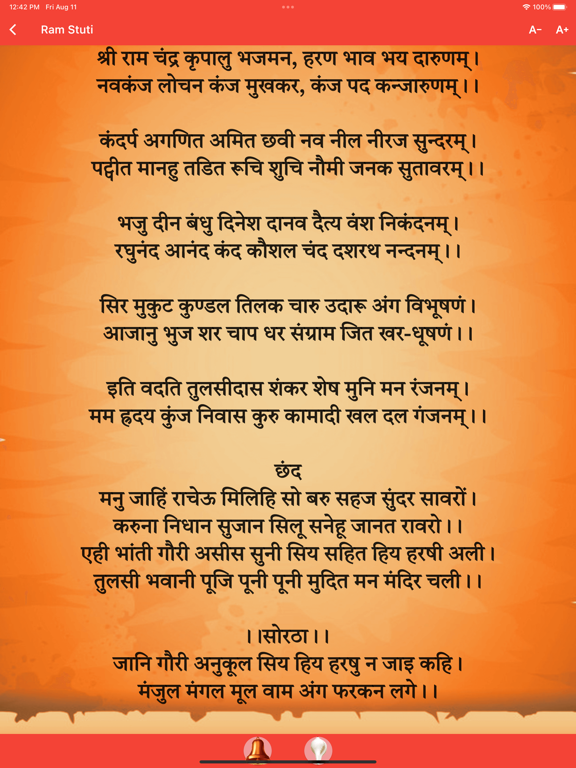 12:42 PM Fri Aug 11
100%
Ram Stuti
A−
A+
श्री राम चंद्र कृपालु भजमन, हरण भाव भय दारुणम्।
नवकंज लोचन कंज मुखकर, कंज पद कन्जारुणम्।।
कंदर्प अगणित अमित छवी नव नील नीरज सुन्दरम्।
पट्पीत मानहु तडित रूचि शुचि नौमी जनक सुतावरम्।।
भजु दीन बंधु दिनेश दानव दैत्य वंश निकंदनम्।
रघुनंद आनंद कंद कौशल चंद दशरथ नन्दनम्।।
सिर मुकुट कुण्डल तिलक चारु उदारू अंग विभूषणं।
आजानु भुज शर चाप धर संग्राम जित खर-धूषणं।।
इति वदति तुलसीदास शंकर शेष मुनि मन रंजनम्।
मम ह्रदय कुंज निवास कुरु कामादी खल दल गंजनम्।।
छंद
मनु जाहिं राचेऊ मिलिहि सो बरु सहज सुंदर सावरों।
करुना निधान सुजान सिलू सनेहू जानत रावरो।।
एही भांती गौरी असीस सुनी सिय सहित हिय हरषी अली।
तुलसी भवानी पूजि पूनी पूनी मुदित मन मंदिर चली।।
।।सोरठा।।
जानि गौरी अनुकूल सिय हिय हरषु न जाइ कहि।
मंजुल मंगल मूल वाम अंग फरकन लगे।।